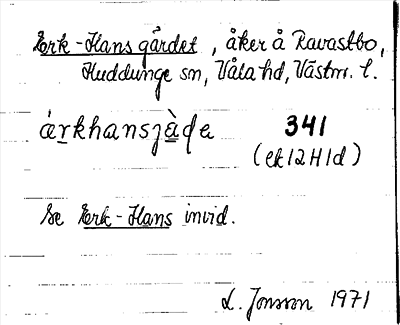 Erk-Hans gärdet, åker å Ravastbo,
Huddunge sn, Våla hd, Västm. l.
ȧr̲khansjà̲ɖe 341
(ek 12 H 1d)
Se Erk-Hans invid.
L. Jonsson 1971